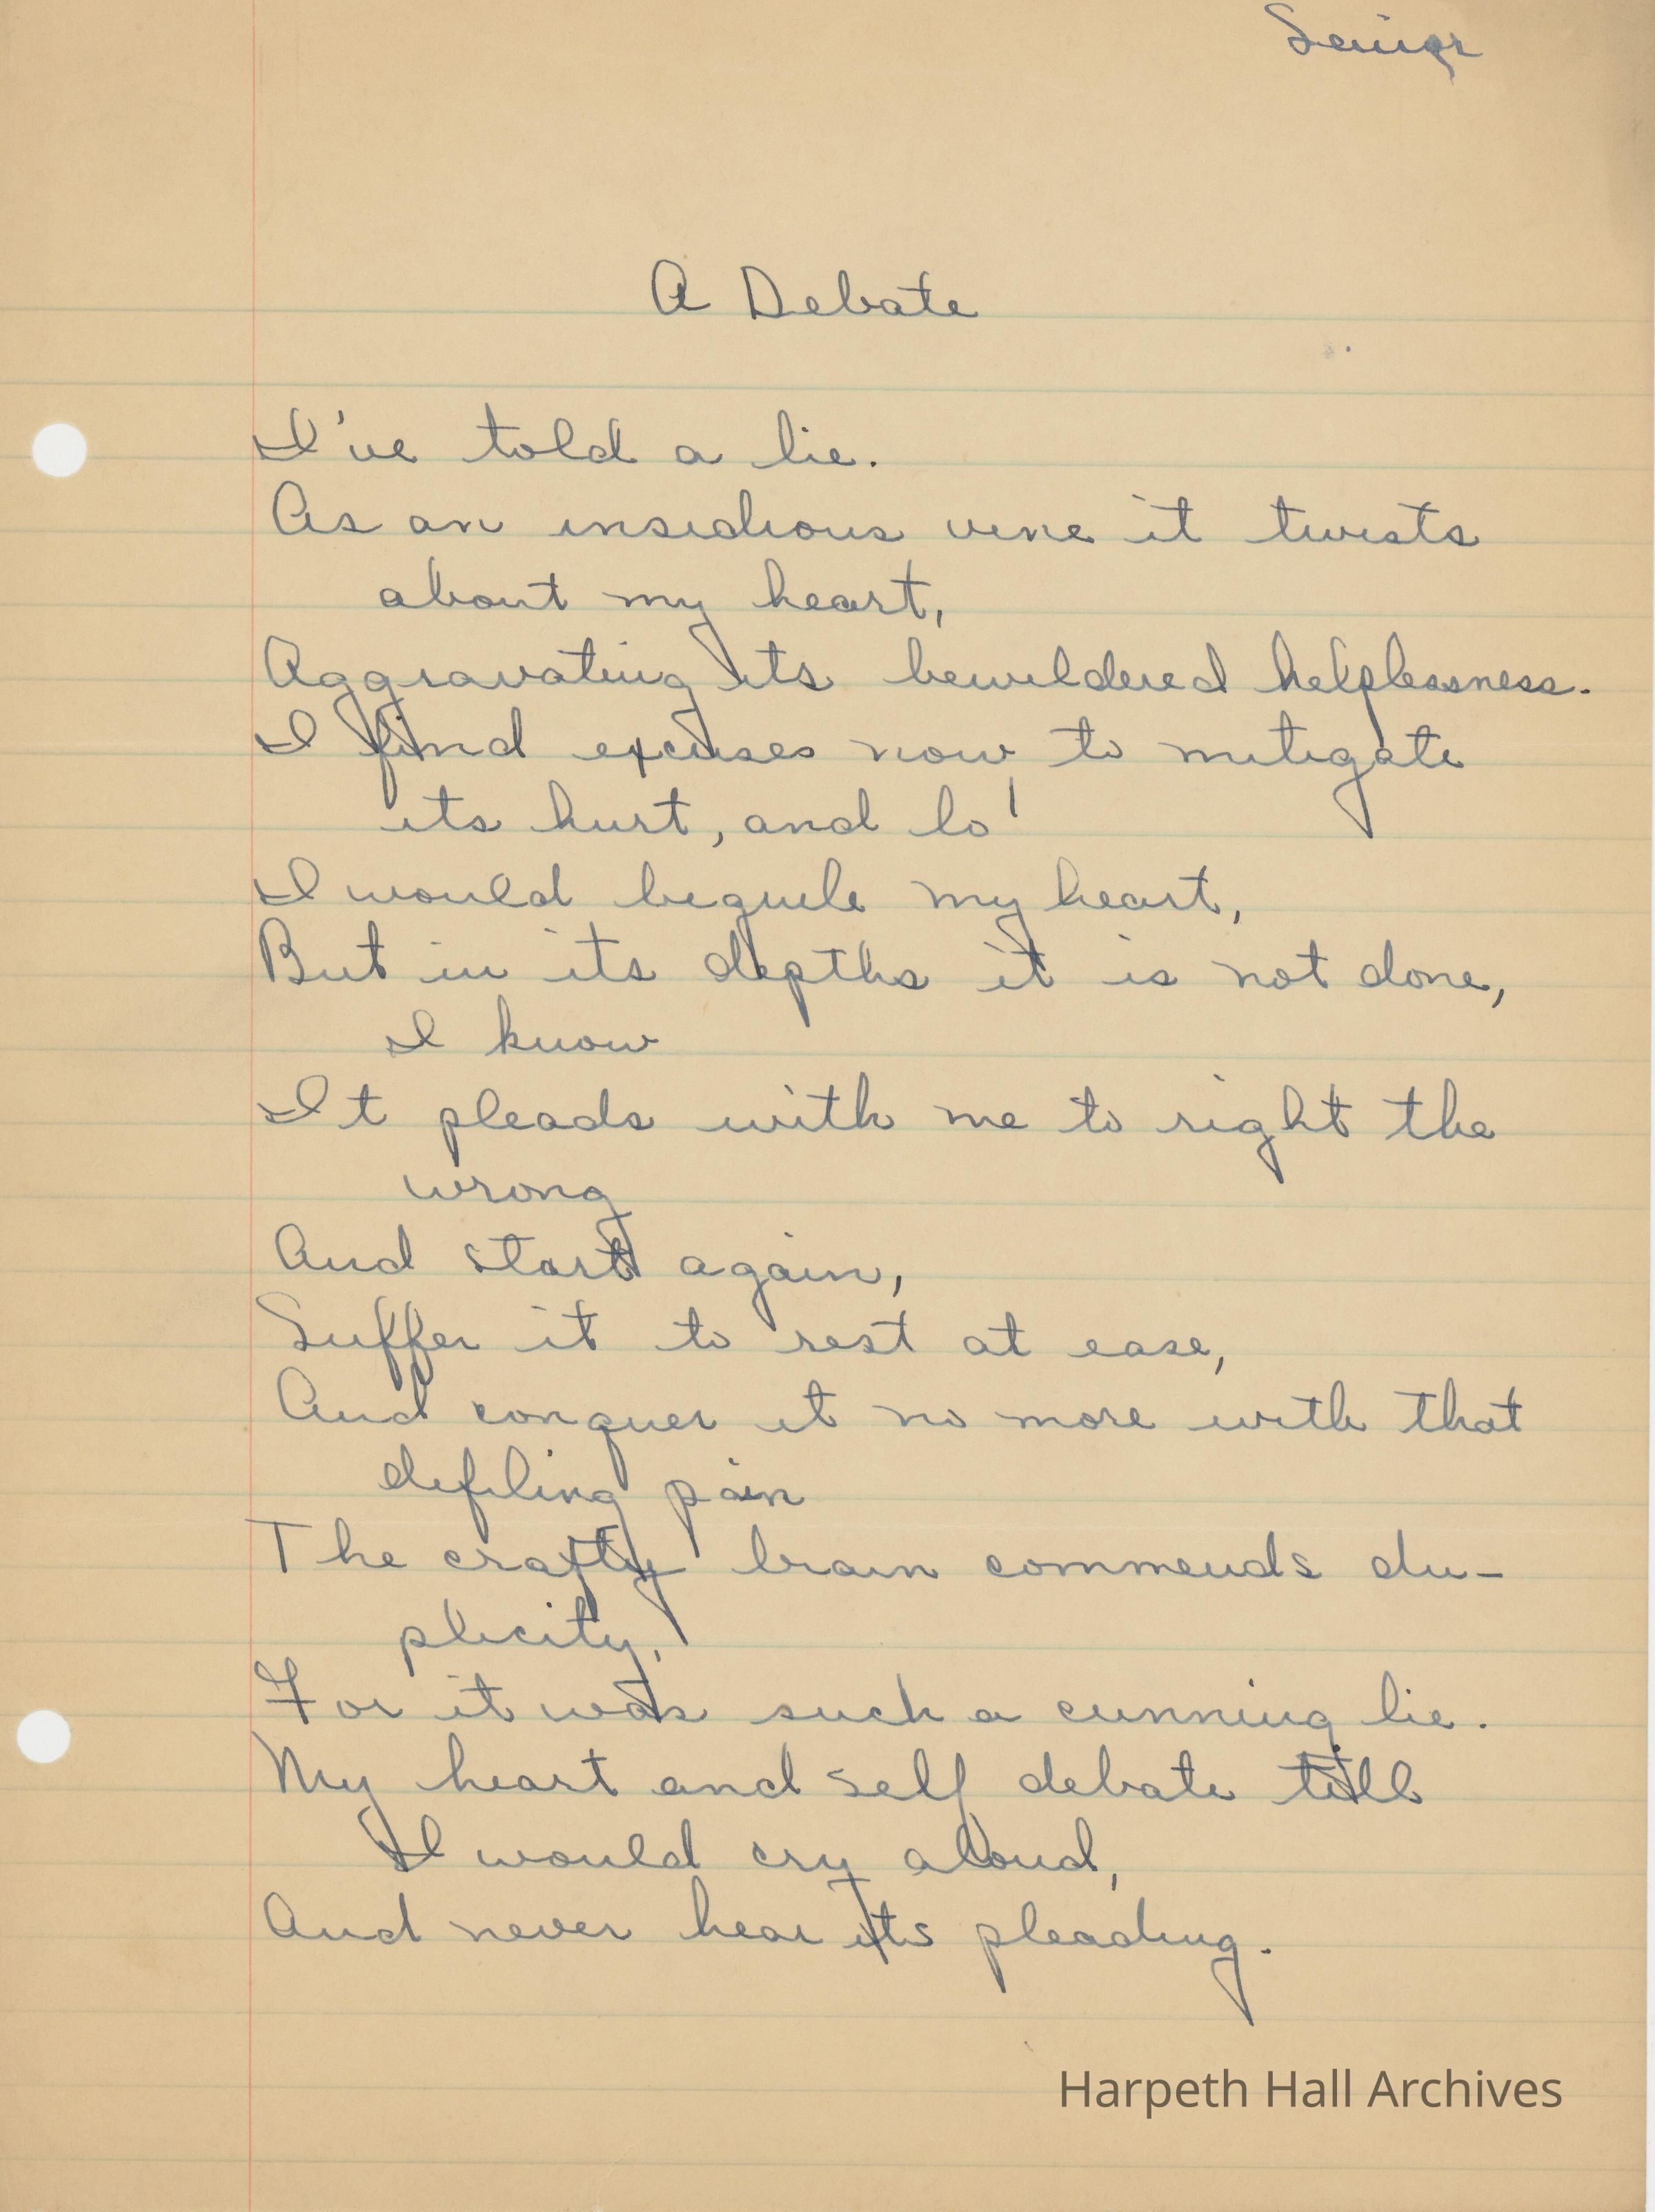 Senior
A Debate
I've told a lie.
As an insidious vine it twists
about my heart,
Aggravating its bewildered helplessness.
I find excuses now to mitigate
its hurt, and lo!
I would beguile my heart,
But in its depths it is not done,
I know
It pleads with me to right the
wrong
And start again,
Suffer it to rest at ease,
And conquer it no more with that
defiling pain
The crafty brain commends du-
plicity,
For it was such a cunning lie.
My heart and self debate till
I would cry aloud,
And never hear its pleading.
Harpeth Hall Archives